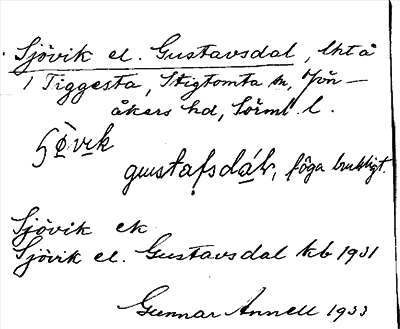 Sjövik el. Gustavsdal, lht å
1 Tiggesta, Stigtomta sn, Jön-
åkers hd, Sörml. l.
ʃö̀vik
gustafsdáł, föga brukligt.
Sjövik ek
Sjövik el. Gustavsdal kb 1931
Gunnar Annell 1933